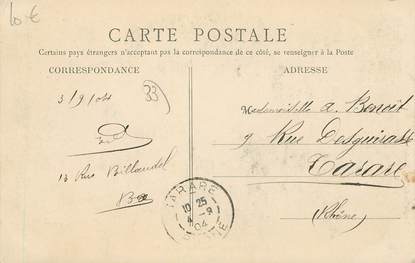 10 €
CARTE POSTALE
Certains pays étrangers n'acceptant pas la correspondance de ce côté, se renseigner à la Poste
CORRESPONDANCE
ADRESSE
3/9/04
33
13 Rue Billaudel
Bx
Mademoiselle A. Benoit
9 Rue Desguirass
Tarare
(Rhône)
TARARE
10 25
4 -9
04
RHONE